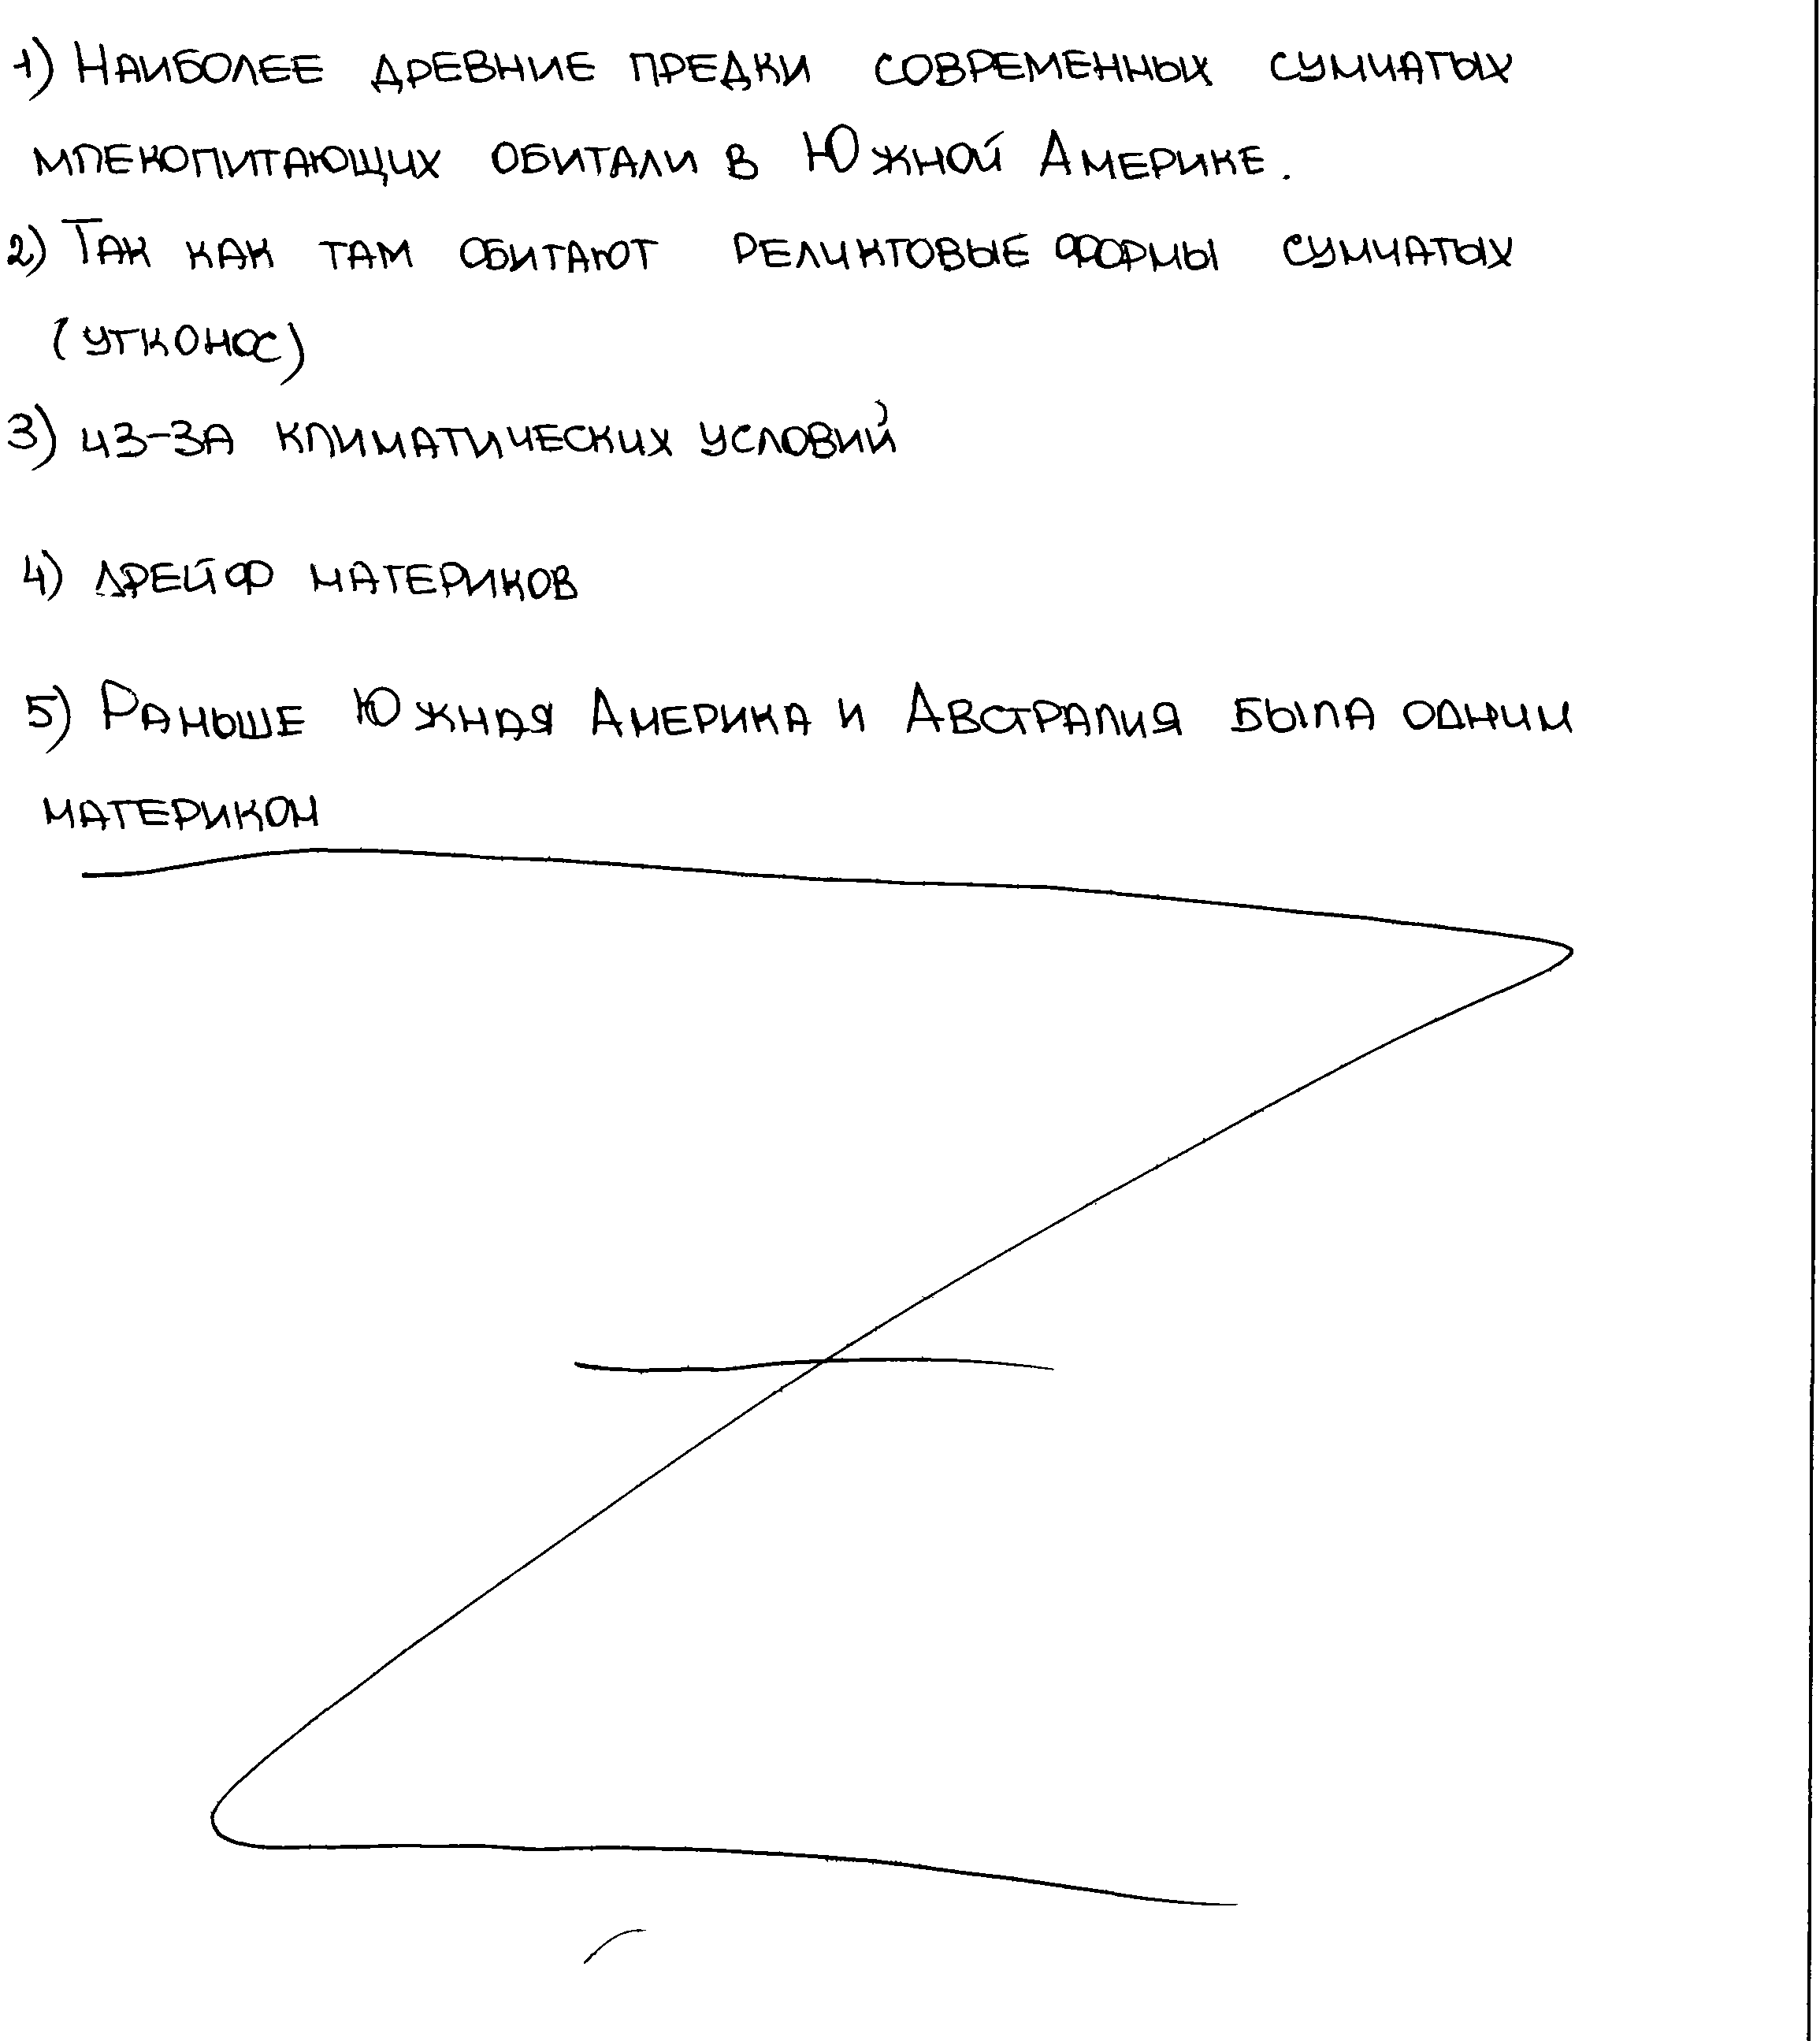 1) Наиболее древние предки современных сумчатых
млекопитающих обитали в Южной Америке.
2) Так как там обитают реликтовые формы сумчатых
(утконос)
3) из-за климатических условий
4) дрейф материков
5) Раньше Южная Америка и Австралия была одним
материком